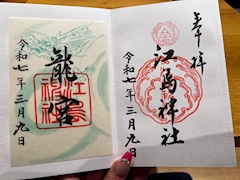 奉拝
江島神社
令和七年三月九日
龍宮
令和七年三月九日